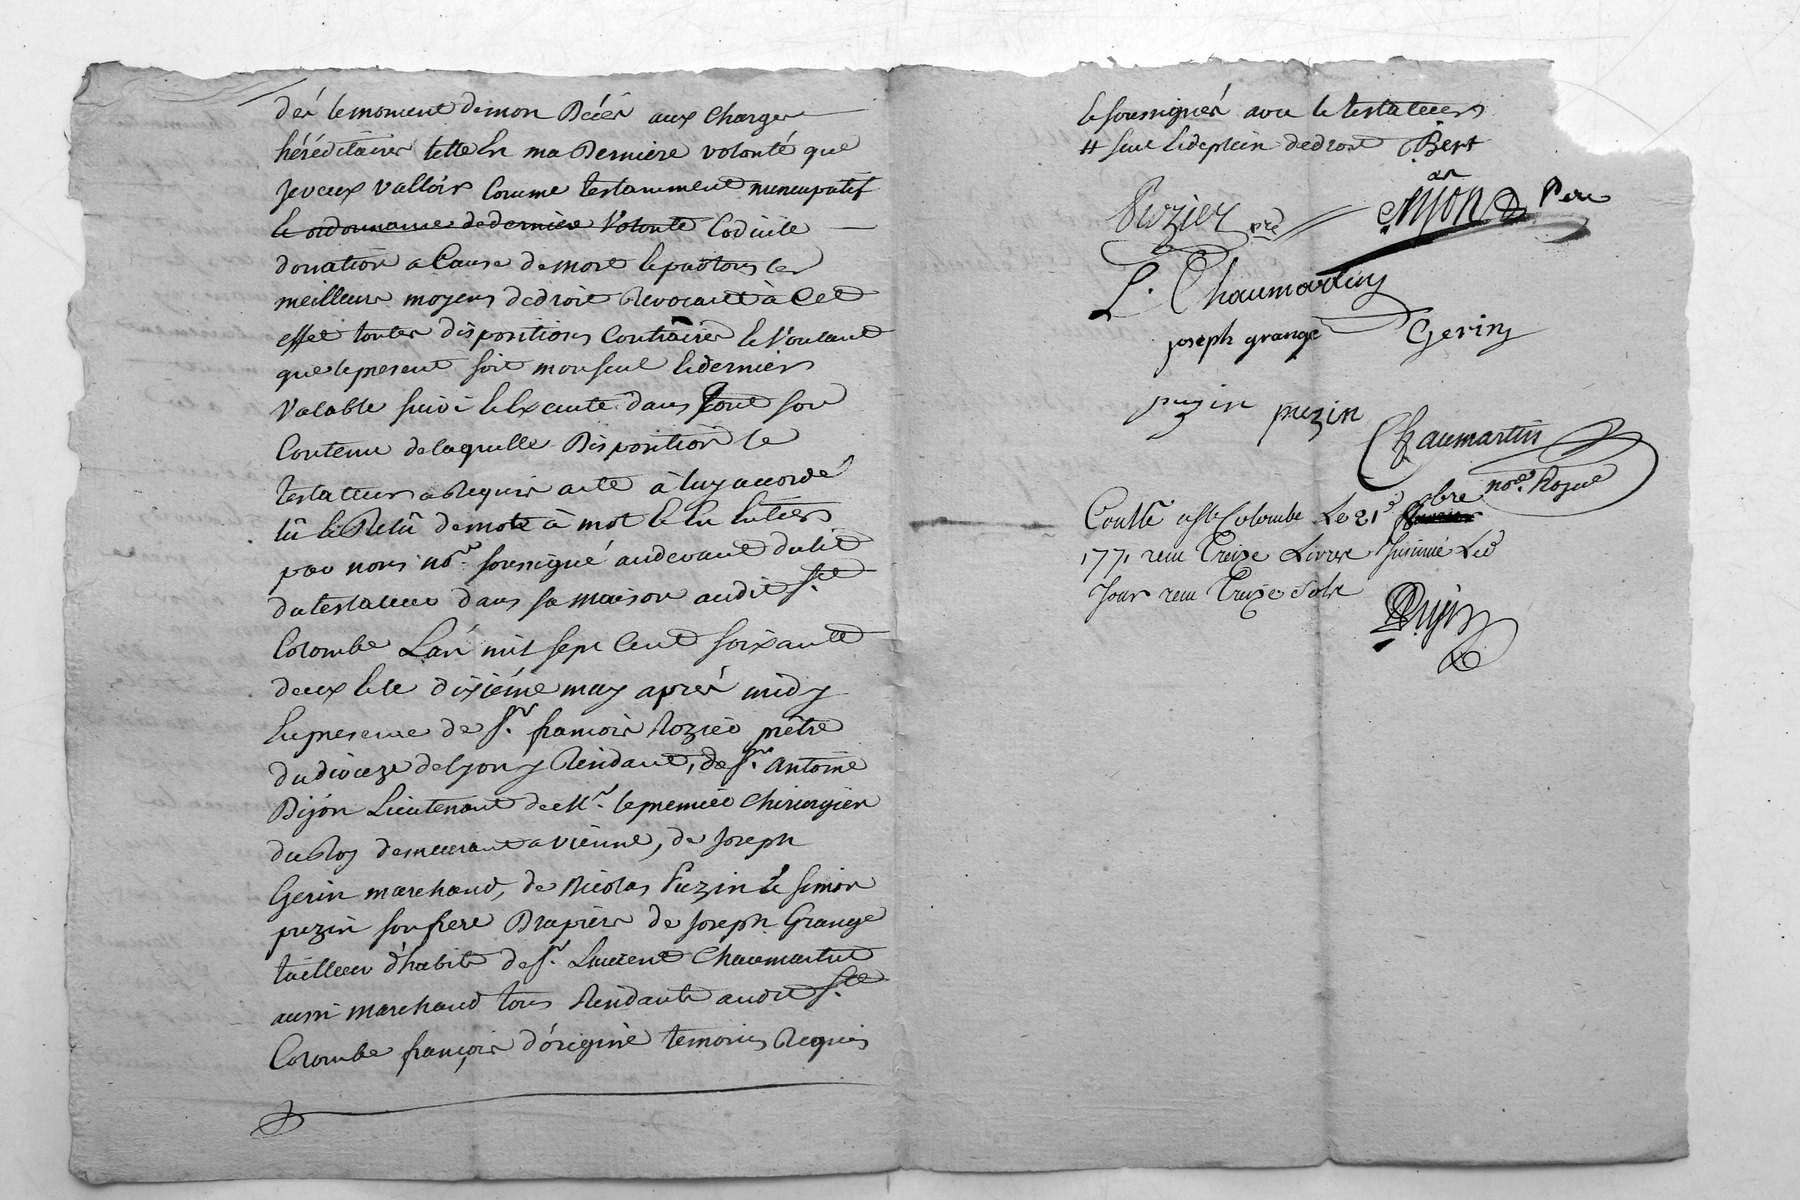 dés le moment de mon Décés aux Charges
héréditaires telle En ma Derniere volonté que
Je veux valloir Comme testamment nuncupatif
et ordonnance de derniere Volonté Codicile
donation a Cause de mort Et par tous les
meilleurs moyens de droit Revocant à Cet
effet toutes dispositions Contraires Et Voulant
que le present soit mon seul Et dernier
Valable suivi Et Executé dans tout son
Contenu de laquelle Disposition le
testateur a Requis acte à luy accordé
lû Et Relû de mot à mot Et En Entier
par nous no.re soussigné audevant du lit
du testateur dans sa maison audit S.te
Colombe L'an mil sept Cent soixante
deux Et le dixiéme may aprés midy
En presence de S.r françois Rozier prêtre
du dioceze de Lyon y Residant, de S.r Antoine
Dijon Lieutenant de M.r le premier Chirurgien
du Roy demeurant a vienne, de Joseph
Gerin marchand, de Nicolas Puzin Et Simon
puzin son frere Drapiers de Joseph Grange
tailleur d'habits de S.r Laurent Chaumartin
aussi marchand tous Residants audit S.te
Colombe françois d'origine temoins Requis
Et soussignés avec le testateur
# seul Et de plein de droit Bert
Rozier pre
Dijon Pere
L. Chaumartin
joseph grange Gerin
puzin puzin
Chaumartin
no.re Royal
Contllé a Ste Colombe Le 21e bre
1771 reçu Treize Livres Insinué Led
Jour reçu Treize Sols